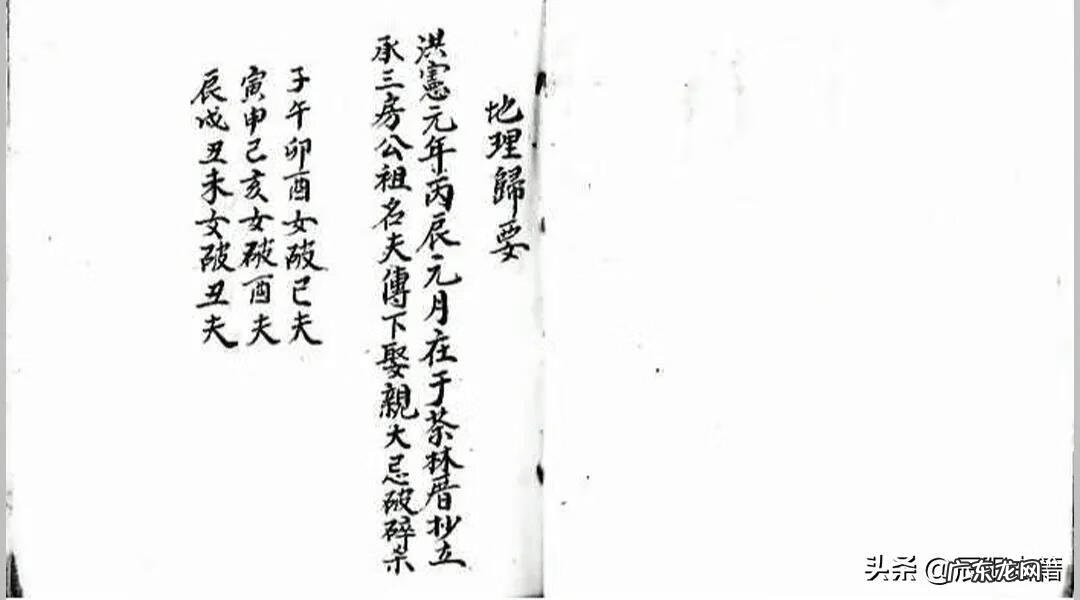 地理歸要
洪憲元年丙辰元月在于茶林厝抄立
承三房公祖名夫傳下娶親大忌破碎杀
子午卯酉女破巳夫
寅申己亥女破酉夫
辰戌丑未女破丑夫
头条 @广东龙网